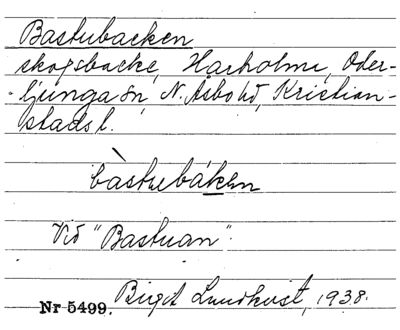 Bastubacken
skogsbacke, Harholma, Oder-
ljunga sn, N. Åsbo hd, Kristian-
stads l.
bàstubáken
Vid "Bastuan".
Nr 5499. Birgit Lundkvist, 1938.